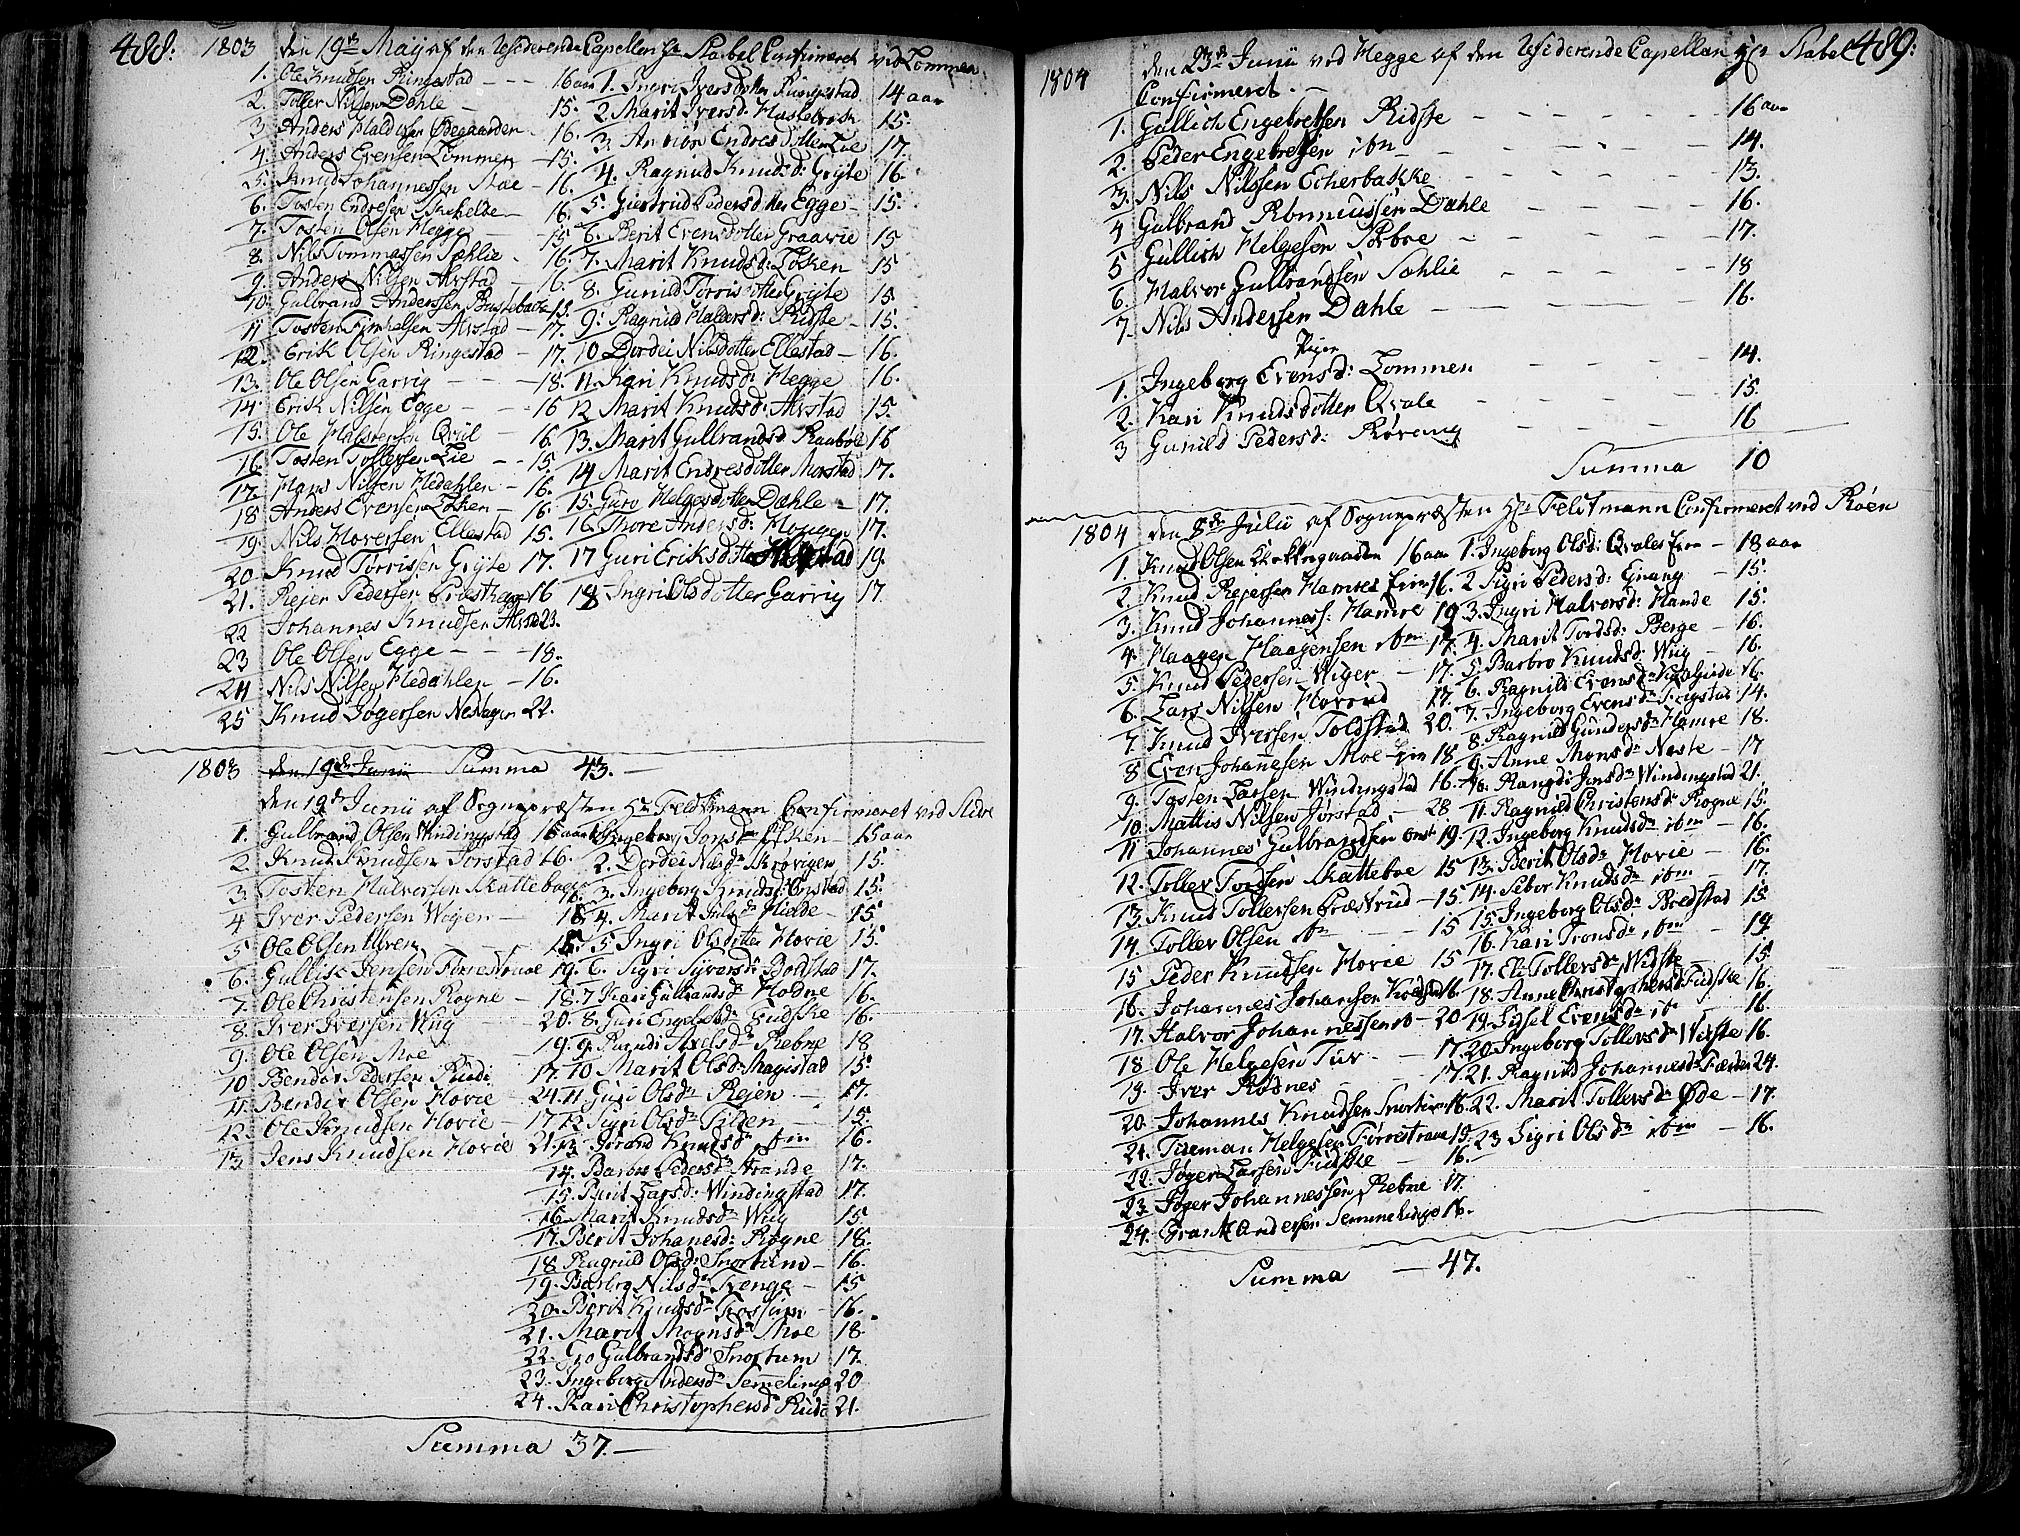 488.
1803 den 19de Maij af den Residerende Capellan Hr Stabel Confirmeret ved Lommen
1. Ole Knudsen Ringestad - - - 16 aar 1. Ingri Iversdotter Ringestad 14 aar
2. Toller Nilsen Dahle - 15. 2. Marit Iversd: 15.
3. Anders Ødegaarden 16. 3. Endresdotter Lie 17.
4. Anders Evensen Lommen - 15. 4. Ragnild Knudsd: Grÿte 16.
5. Knud Johannessen - 16. 5. Giertrud Pedersdotter Egge - 15.
6. Tosten Endresen - 16. 6. Berit Evensdotter Graavie 15
7. Tosten Olsen Hegge - 15. 7. Marit Knudsd: Løken 15
8. Nils Tommassen Sæhlie - 16. 8. Gunild Torrisdotter Grÿte 15.
9. Anders Nilsen Alvstad - 16. 9. Ragnild Haldorsd: Ridste - 15.
10. Gulbrand Anderssen 15. 10 Dordei Nilsdotter Ellestad - 16.
11 Tosten Alvstad - 17. 11. Kari Knudsd: Hegge 16.
12. Erik Olsen Ringestad - 17. 12 Marit Knudsd: Alvstad 15.
13. Ole Olsen Garvig - - 18. 13. Marit Gulbrandsd: 16
14. Erik Nilsen Egge - - 16 14 Marit Endresdotter 17.
15. Ole Halstensen Qvil - 16. 15. Guro Helgesdotter Dahle - 17.
16. Tosten Tollersen Lie - 15. 16. 17.
17. Hans Nilsen Hedahlen - 16. 17 Guri Eriksdotter 19.
18 Anders Evensen Løken - 16. 18 Ingri Olsdotter Garvig 17.
19. Nils Hoversen Ellestad 15.
20 Knud Torrissen Grÿte 17.
21. Rejer Pedersen 16
22 Johannes Knudsen 23.
23 Ole Olsen Egge - - - 18.
24 Nils Nilsen Hedahlen - 16.
25 Knud Jøgersen 22.
1803 den 19de Junii Summa 43. -
den 19de Junii af Sognepræsten Hr Feldtmann Confirmeret ved Slidre
1. Gulbrand Olsen Windingstad 16 aar 1. Ingeborg Jonsdr Løken - 15 aar
2. Knud Knudsen Jørstad 16. 2. Dordei Nilsdr 15.
3. Tosten Halvorsen Skatteboe 16. 3. Ingeborg Knudsd: Onstad 15.
4 Iver Pedersen Weÿen - 16. 4. Marit Hielde - 15
5 Ole Olsen Ulven - 15. 5. Ingri Olsdotter Hovie 15.
6. Gullik Jensen Tørrestrue 19. 6. Sigri Sÿversd: Bolstad 17.
7. Ole Christensen Rogne - 18. 7. Kari Gulbrandsdr Hodne 16.
8. Iver Iversen Wiig 20. 8. Guri Engebretsdr Fudske 16.
9 Ole Olsen Moe - 19. 9. Randi Axelsdr Rebne 18
10 Bendix Pedersen Rudi 17. 10 Marit Olsd: Magistad 15.
11. Bendix Olsen Hovie - 24. 11 Guri Olsdr Rejen - 17.
12. Ole Knudsen Hovie - 17 12 Sigri Olsdr 15.
13 Jens Knudsen Hovie 21. 13 Jorand Knudsdr ibm 16.
14. Barbro Pedersdr Strande 17.
15. Marit Larsd: Windingstad 17.
16 Marit Knudsdr Wiig 15.
17. Berit Johanesd: Rogne 18.
18 Ragnild Olsd: Snortum - 16.
19. Barbro Nilsdr - 15
20. Berit Knudsdr Fossum - 16.
21. Marit Mognsdr Moe 18.
22. Gro Gulbrandsdr Snortum 17.
23. Ingeborg Andersdr Semmelinge 20
24. Kari Christophersdr Rudi 21.
Summa 37. -
489.
1804 den 23de Junii ved Hegge af den Residerende Capellan Hr Stabel
Confirmeret. -
1. Gullich Engebretsen Ridste - - - - 16 aar
2. Peder Engebretsen ibm - - - - 14.
3. Nils Nilsen Echerbakke - - - - 13.
4 Gulbrand Rønneussen Dahle - - - 16.
5 Gullich Helgesen - - - - 17.
6. Halvor Gulbrandsen Sæhlie - - - - 18
7. Nils Andersen Dahle - - - - 16.
Piger
1. Ingeborg Evensd: Lommen - - - 14.
2. Kari Knudsdotter Qvale - - - - 15.
3 Gunild Pedersd: - - - - 16
Summa 10
1804 den 8de Julii af Sognepræsten Hr Feldtmann Confirmeret ved Røen
1. Knud Olsen 16 aar 1. Ingeborg Olsd: Qvales Eier - 18 aar
2. Knud Rejersen Hamres Eier 16. 2 Sigri Pedersd: - 15.
3. Knud Johanness: Hamre 19. 3. Ingri Halvorsd: Hande 15.
4. Haagen Haagensen ibm - 17. 4. Marit Tordsd: Berge - 16.
5. Knud Pedersen Wiger - 17. 5. Barbro Knudsd: Wiig - 16.
6. Lars Nilsen Hovrud 17. 6. Ragnild Evensdr 16.
7. Knud Iversen Toldstad 20. 7. Ingeborg Evensdr 14.
8 Even Johanesen Moe Eier 18 8. Ragnild Gundersdr Hamre 18.
9. Tosten Larsen Windingstad 16. 9. Anne Monsdr Neste - 17
10. Mattis Nilsen Jørstad - 28. 10. Rangdi Jonsdr Windingstad 21.
11 Johannes Gulbrandsen Onst 19. 11. Ragnild Christensdr Rogne 15.
12. Toller Tordsen Skatteboe 15 12. Ingeborg Knudsdr ibm - 16.
13. Knud Tollersen Præstrud - 15. 13. Berit Olsdr Hovie - 16.
14. Toller Olsen ibm - 15 14. Sebor Knudsdr ibm - 17.
15 Peder Knudsen Hovie 15 15 Ingeborg Olsdr Bredstad 15
16. Johannes Johansen 16. 16. Kari Tronsdr ibm - 19
17. Halvor Johannessen ib - 20 17. Eli Tollersdr Widste 15.
18 Ole Helgesen Tuv - 17. 18. Anne Christophersd Fudske 16.
19. Iver Rødnes - - 17. 19. Sidsel Evensdr ib - 16.
20. Johannes Knudsen Snortum 16. 20 Ingeborg Tollersdr Widste 16.
21. Tideman Helgesen Tørrestrue 19. 21. Ragnild Johannesdr 24.
22. Jøger Larsen Fudske - 16. 22. Marit Tollersdr Øde - 17.
23. Jøger Johannessen Rebne 17. 23 Sigri Olsdr ibm - 16.
24. Frantz Andersen Semmelinge 16.
Summa - 47.